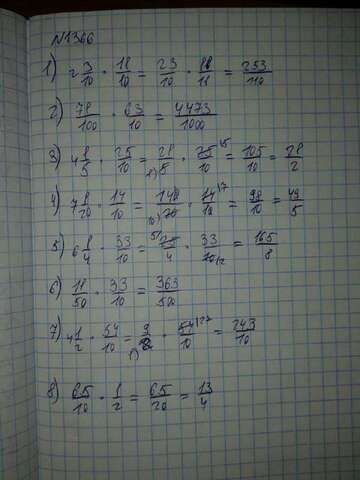 №1366
1) 2 3/10 · 18/10 = 23/10 · 88/11 = 253/110
2) 78/100 · 63/10 = 4473/1000
3) 4 1/5 · 25/10 = 28/5 · 25/10 = 105/10 = 28/2
4) 7 1/20 · 14/10 = 140/20 · 14/10 = 98/10 = 49/5
5) 6 1/4 · 33/10 = 25/4 · 33/10 = 165/8
6) 11/50 · 33/10 = 363/500
7) 4 1/2 · 54/10 = 9/2 · 54/10 = 243/10
8) 65/10 · 1/2 = 65/20 = 13/4